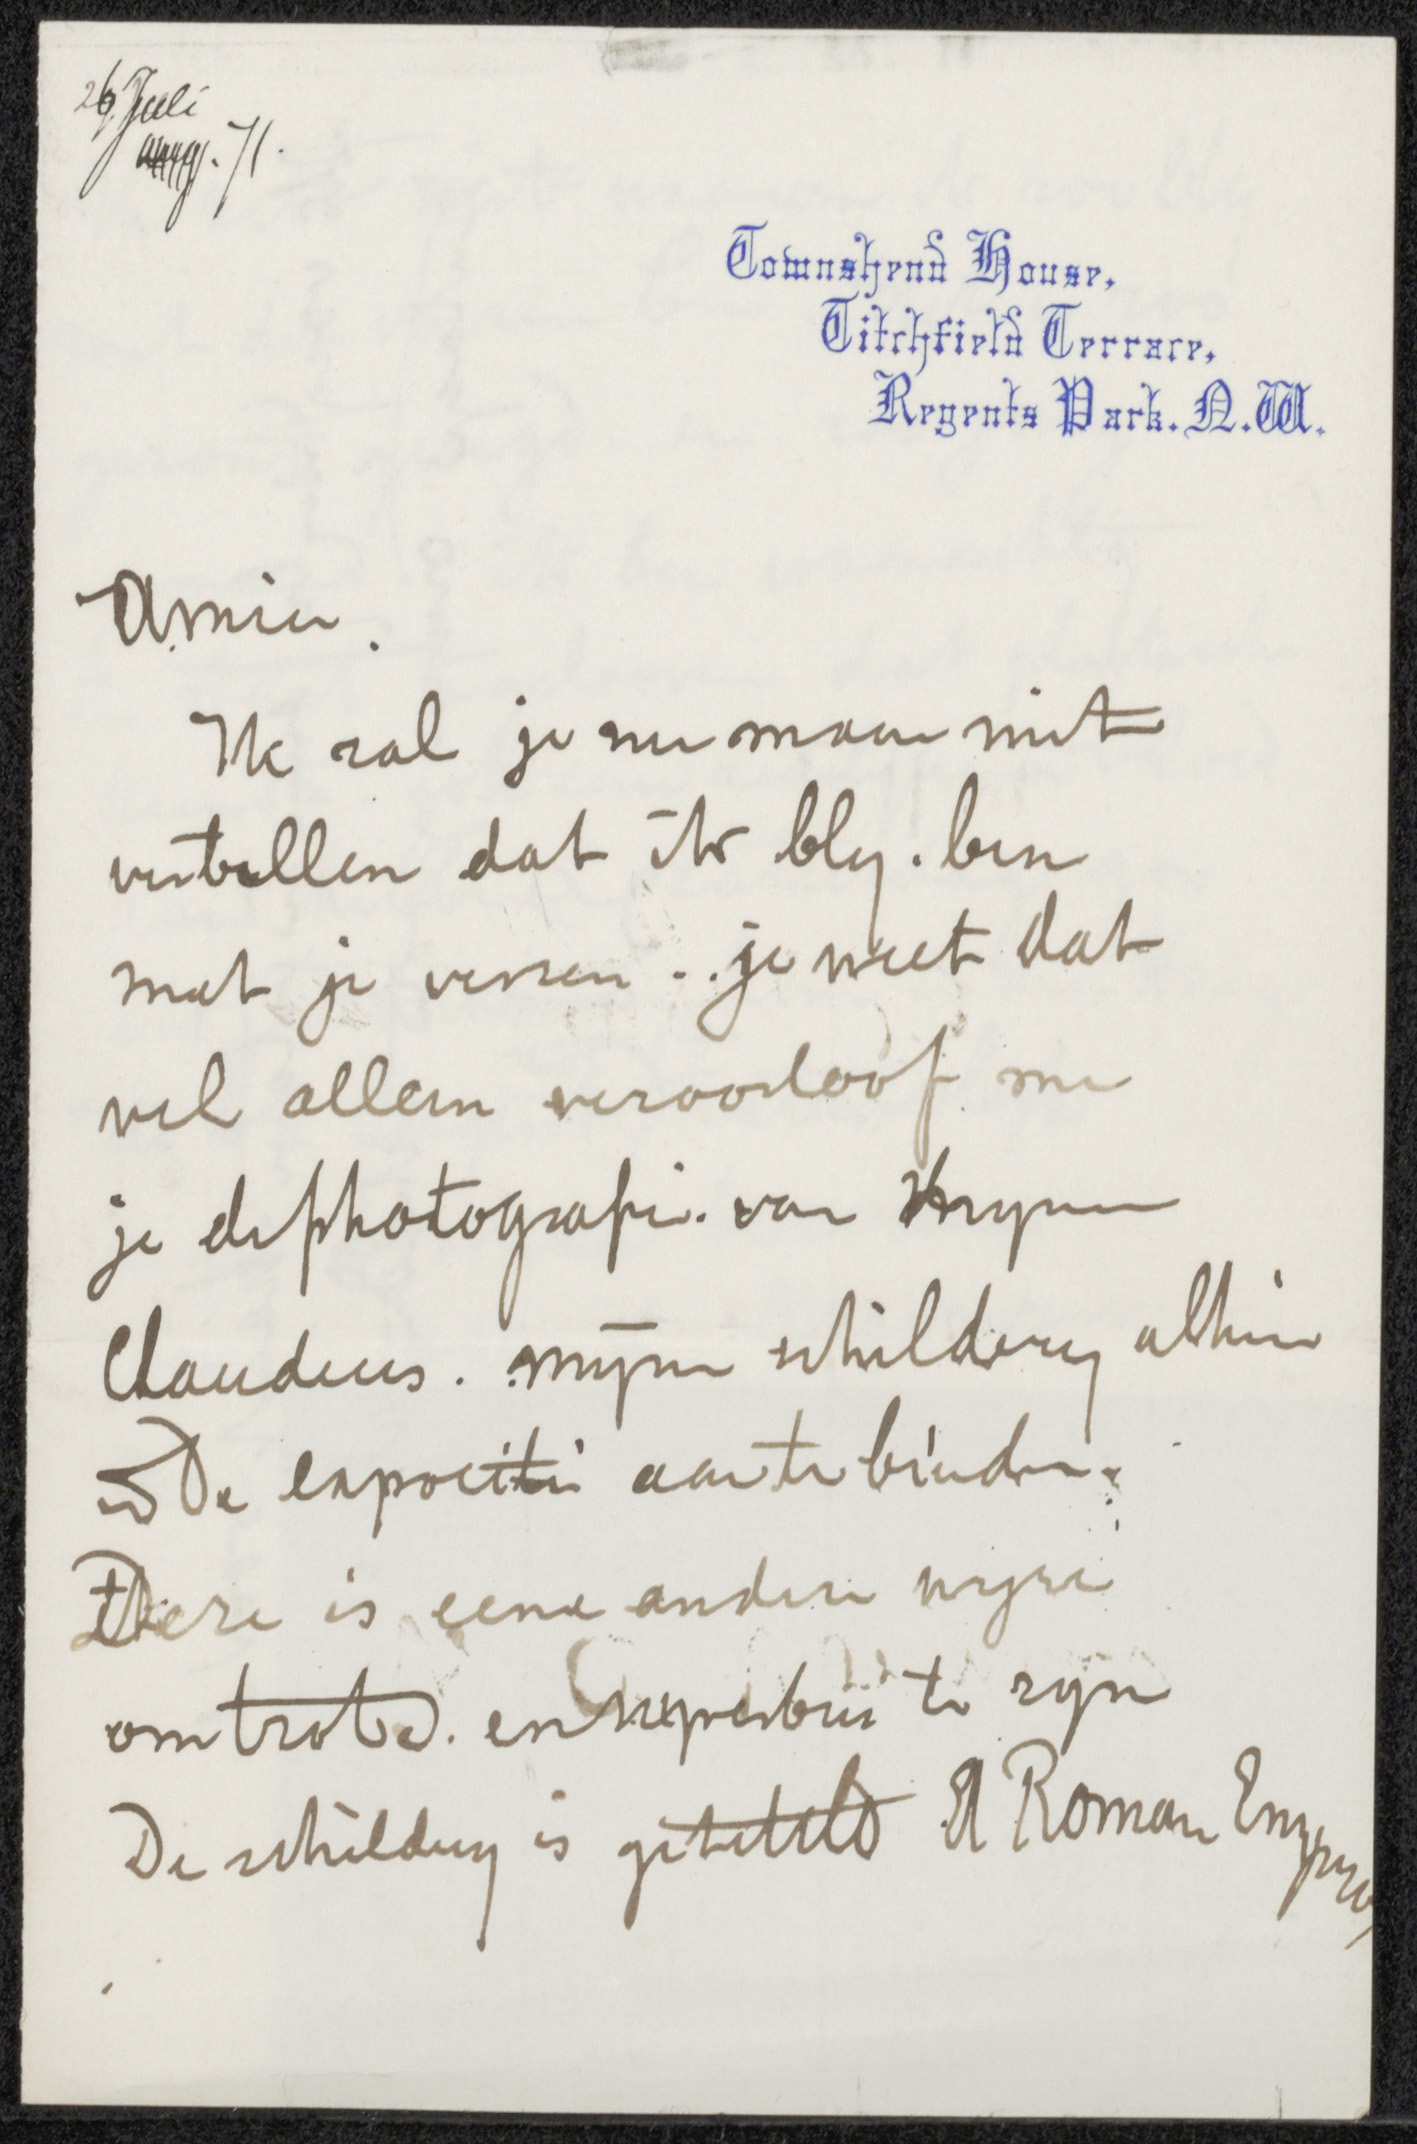 26 Juli
71.
Townshend House,
Titchfield Terrace,
Regents Park. N.W.
Amice.
Ik zal je nu maar niet
vertellen dat ik bly. ben
met je verzen . . je weet dat
wel alleen veroorloof me
je de photografie. van mynen
Claudius. myne schildery alhier
De expocitie aan te bieden.
Deze is eene andere wyze
om trots. en te zyn
De schildery is getiteld A Roman Emperor,